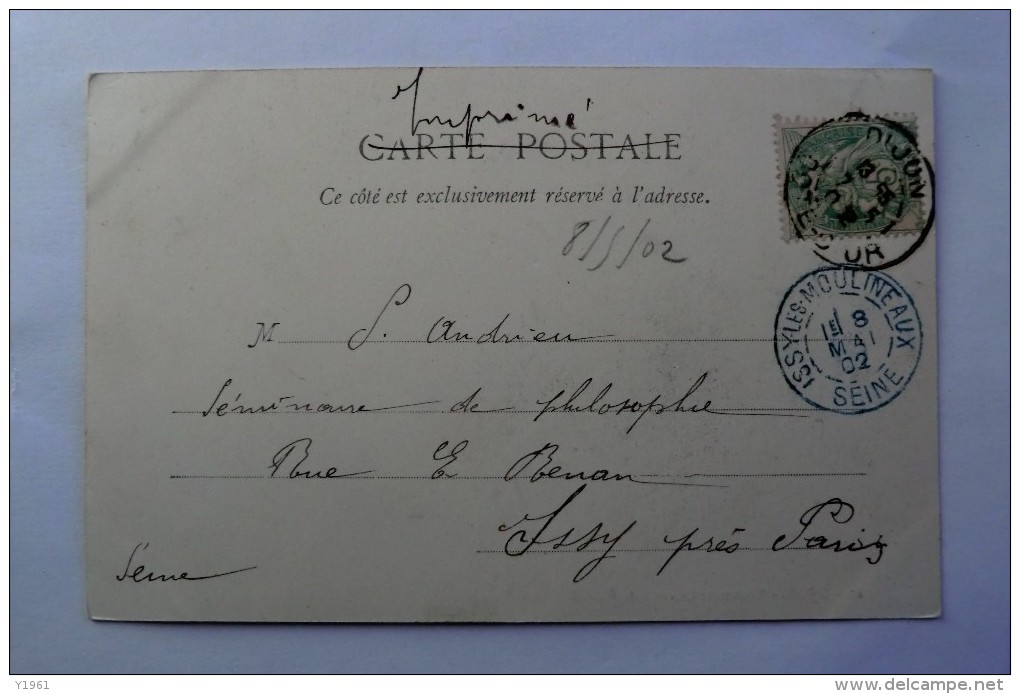 Imprimé
CARTE POSTALE
Ce côté est exclusivement réservé à l'adresse.
8/5/02
DIJON
COTE-D'OR
ISSY-LES-MOULINEAUX
1E 8
MAI
02
SEINE
M S. Andrieu
Séminaire de philosophie
Rue E Renan
Issy près Paris
Seine
Y1961
http://www.delcampe.net